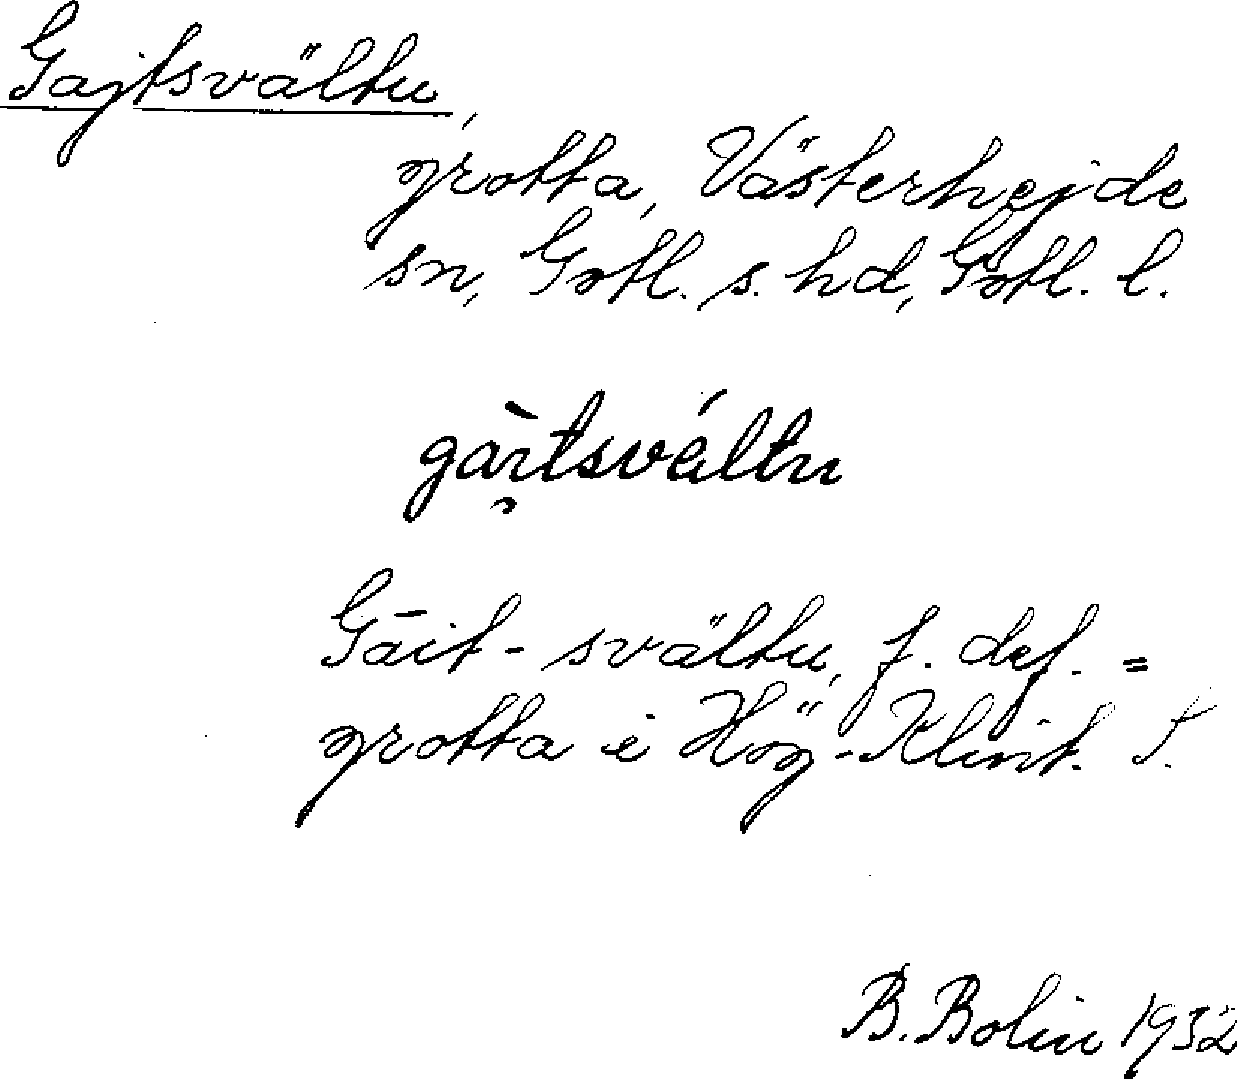 Gajtsvältu,
grotta, Västerhejde
sn, Gotl. s. hd, Gotl. l.
gàı̯tsváltu
Gāit-svältu, f. def. =
grotta i Hög-Klint. S.
B. Bolin 1932